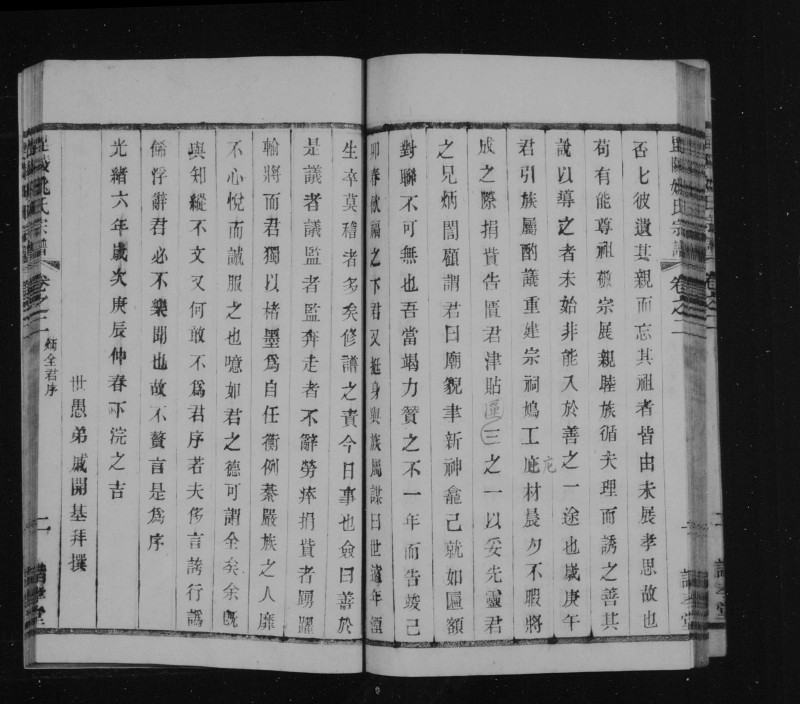 毘陵姚氏宗譜 卷之二
否七彼遺其親而忘其祖者皆由未展孝思故也
苟有能尊祖敬宗展親睦族循天理而誘之善其
說以導之者未始非能入於善之一途也歲庚午
君引族屬酌議重建宗祠鳩工庇材晨夕不暇將
庀
成之際捐貲告匱君津貼三之一以妥先靈君
匱
之兄炳誾顧謂君曰廟貌聿新神龕已就如匾額
對聯不可無也吾當竭力贊之不一年而告竣己
卯春飲福之下君又挺身與族屬謀曰世遠年湮
生卒莫稽者多矣修譜之責今日事也僉曰善於
是議者議監者監奔走者不辭勞瘁捐貲者踴躍
輸將而君獨以楮墨爲自任衡例綦嚴族之人靡
不心悅而誠服之也噫如君之德可謂全矣余旣
與知縱不文又何敢不爲君序若夫侈言誇行譌
僞浮辭君必不樂聞也故不贅言是爲序
光緒六年歲次庚辰仲春下浣之吉
世愚弟戚開基拜撰
毘陵姚氏宗譜 卷之二 全君序 二